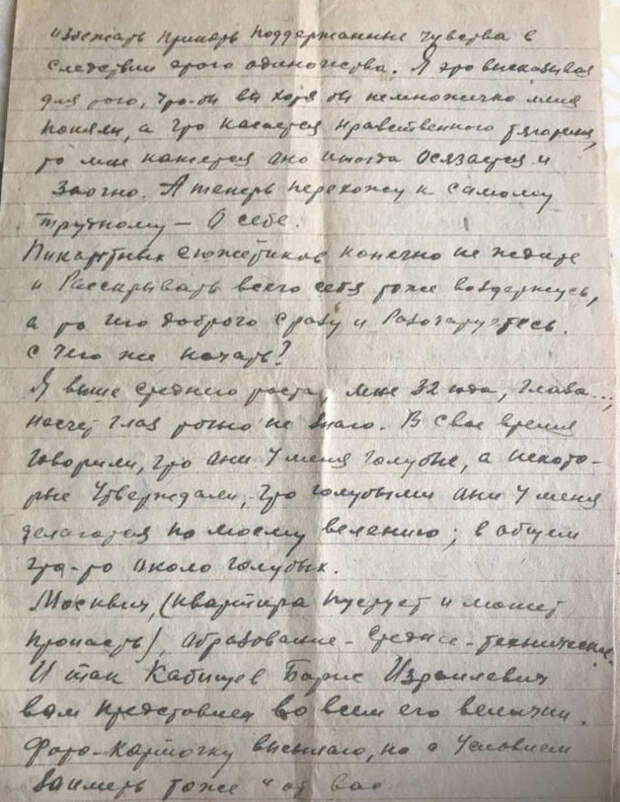 избежать принять поддержанные чувства в
следствии этого одиночества. Я это высказывая
для того, что-бы вы хотя бы немножечко меня
поняли, а что касается нравственного тяготения,
то мне кажется оно иногда осязается и
заочно. А теперь перехожу к самому
трудному – О себе.
Пикантных сюжетиков конечно не ждите
и Раскрывать всего себя тоже воздержусь,
а то чего доброго сразу и Разочаруетесь.
с чего же начать?
Я выше среднего роста, мне 32 года, глаза...,
насчет глаз точно не знаю. В свое время
говорили, что они у меня голубые, а некото-
рые утверждали, что голубыми они у меня
делаются по моему велению; в общем
что-то около голубых.
Москвич, (квартира пустует и может
пропасть), образование – средне-техническое.
И так Борис Израилевич
вам представлен во всем его величии.
Фото-карточку высылаю, но с условием
заиметь тоже и от вас